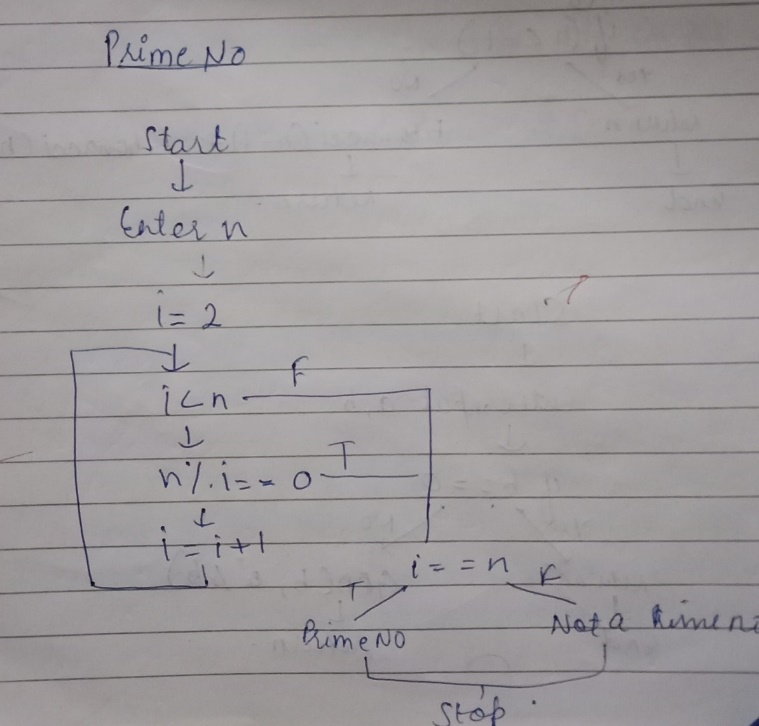 Prime No
Start
Enter n
i = 2
i < n F
n % i = = 0 T
i = i + 1
i = = n
T F
Prime NO Not a Prime
Stop